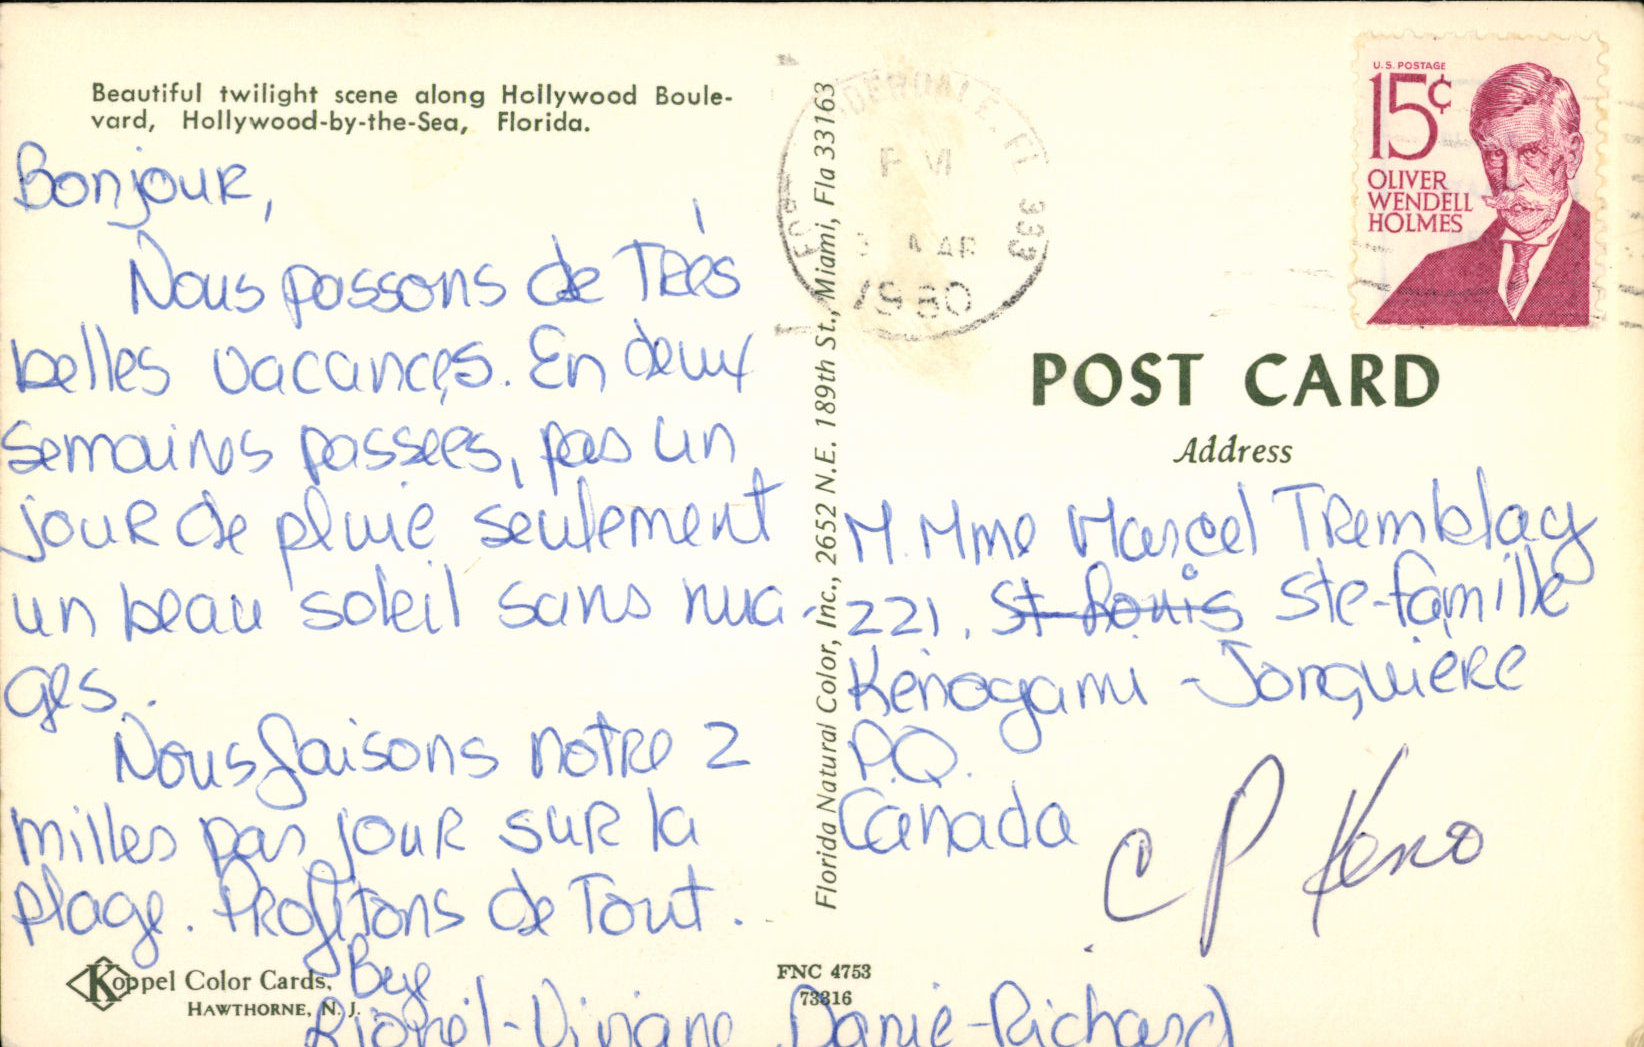 Beautiful twilight scene along Hollywood Boule-
vard, Hollywood-by-the-Sea, Florida.
Bonjour,
Nous passons de Très
belles vacances. En deux
semaines passées, pas un
jour de pluie seulement
un beau soleil sans nua-
ges.
Nous faisons notre 2
milles par jour sur la
plage. Profitons de Tout.
Bye
Lionel-Viviane Danie-Richard
Koppel Color Cards,
HAWTHORNE, N. J.
FNC 4753
73316
Florida Natural Color, Inc., 2652 N.E. 189th St., Miami, Fla 33163
FL 333
PM
MAR
1980
U.S. POSTAGE
15¢
OLIVER
WENDELL
HOLMES
POST CARD
Address
M. Mme Marcel Tremblay
221, St-Louis Ste-famille
Kénogami - Jonquière
P.Q.
Canada
C P Keno